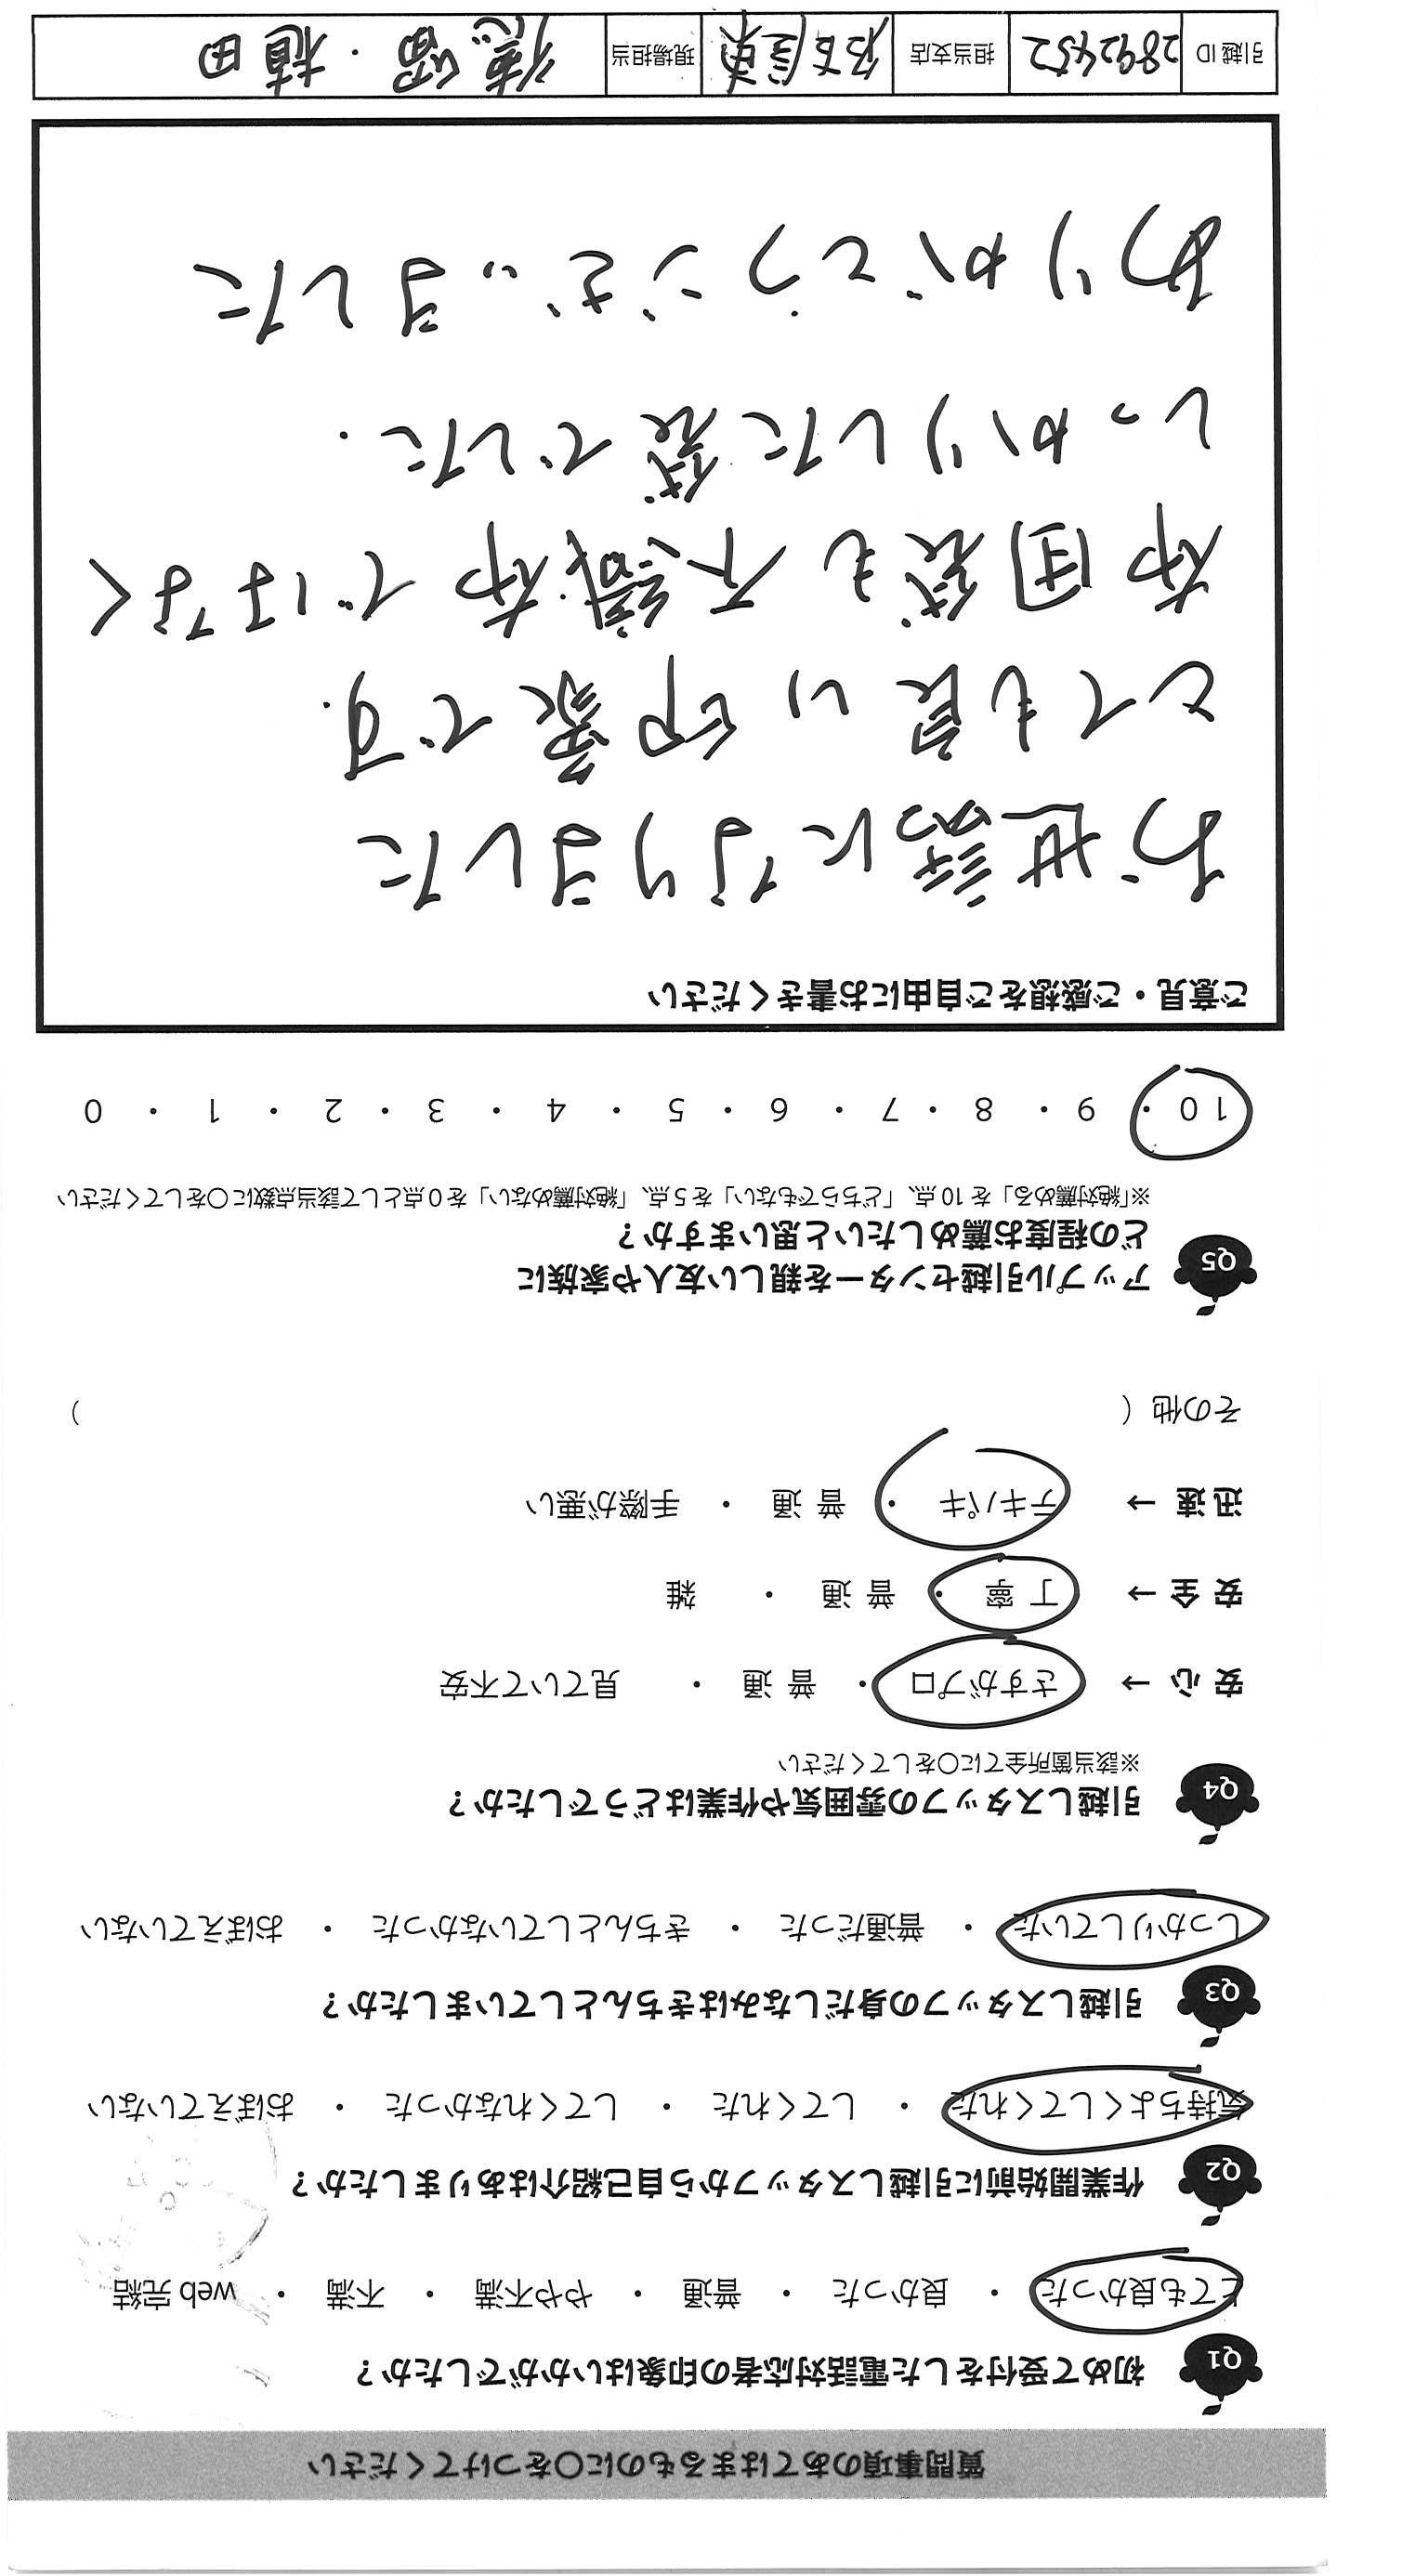 質問事項のあてはまるものに〇をつけてください
Q1 初めて受付をした電話対応者の印象はいかがでしたか？
とても良かった ・ 良かった ・ 普通 ・ やや不満 ・ 不満 ・ web 完結
Q2 作業開始前に引越しスタッフから自己紹介はありましたか？
気持ちよくしてくれた ・ してくれた ・ してくれなかった ・ おぼえていない
Q3 引越しスタッフの身だしなみはきちんとしていましたか？
しっかりしていた ・ 普通だった ・ きちんとしていなかった ・ おぼえていない
Q4 引越しスタッフの雰囲気や作業はどうでしたか？
※該当箇所全てに〇をしてください
安 心 → さすがプロ ・ 普 通 ・ 見ていて不安
安 全 → 丁 寧 ・ 普 通 ・ 雑
迅 速 → テキパキ ・ 普 通 ・ 手際が悪い
その他（ ）
Q5 アップル引越センターを親しい友人や家族に
どの程度お薦めしたいと思いますか？
※「絶対薦める」を 10 点、「どちらでもない」を 5 点、「絶対薦めない」を 0 点として該当点数に〇をしてください
10 ・ 9 ・ 8 ・ 7 ・ 6 ・ 5 ・ 4 ・ 3 ・ 2 ・ 1 ・ 0
ご意見・ご感想をご自由にお書きください
お世話になりました
とても良い印象です.
布団袋も不織布ではなく
しっかりした袋でした.
ありがとうございました
引越 ID 2892452 担当支店 名古屋東 現場担当 徳留・植田